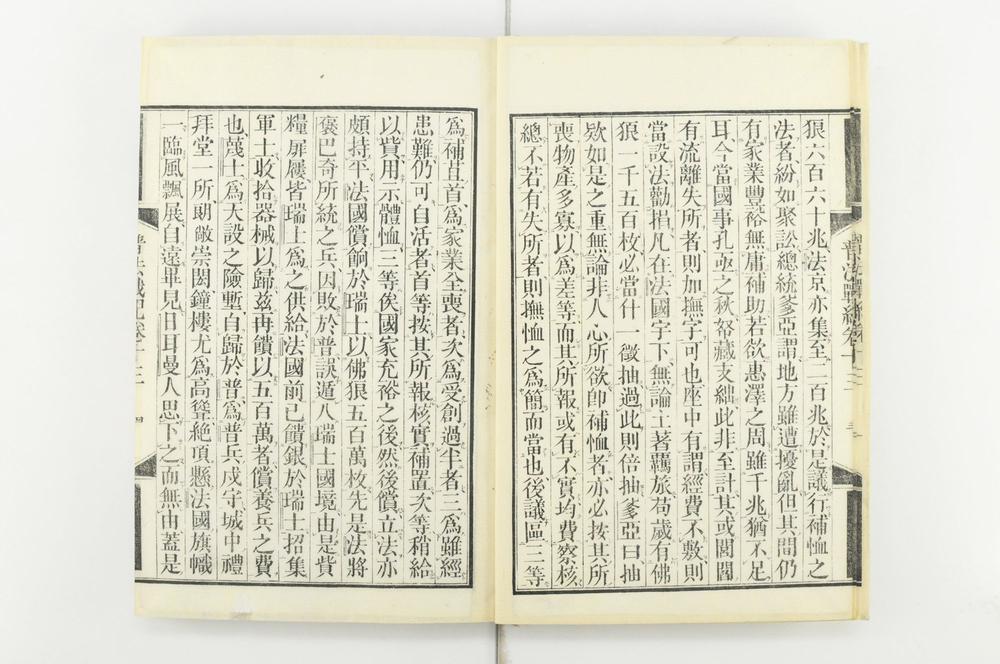 狼六百六十兆法京亦集至二百兆於是議行補恤之
法者紛如聚訟總統爹亞謂地方雖遭擾亂但其間仍
有家業豐裕無庸補助若欲惠澤之周雖千兆猶不足
耳今當國事孔亟之秋帑藏支絀此非至計其或閭閻
有流離失所者則加撫字可也座中有謂經費不敷則
當設法勸捐凡在法國宇下無論土著羈旅苟歲有佛
狼一千五百枚必當什一徵抽過此則倍抽爹亞曰抽
欵如是之重無論非人心所欲卽補恤者亦必按其所
喪物產多寡以爲差等而其所報或有不實均費察核
總不若有失所者則撫恤之爲簡而當也後議區三等
爲補苴首爲家業全喪者次爲受創過半者三爲雖經
患難仍可自活者首等按其所報核實補置次等稍給
以貲用示體恤三等俟國家充裕之後然後償立法亦
頗持平法國償餉於瑞士以佛狼五百萬枚先是法將
褒巴奇所統之兵因敗於普誤遁入瑞士國境由是貲
糧屏屨皆瑞士爲之供給法國前已饋銀於瑞士招集
軍士收拾器械以歸茲再饋以五百萬者償養兵之費
也蔑士爲天設之險塹自歸於普爲普兵戍守城中禮
拜堂一所朗敞崇閎鐘樓尤爲高聳絕頂懸法國旗幟
一臨風飄展自遠畢見日耳曼人思下之而無由蓋是
普法戰紀卷十三
四